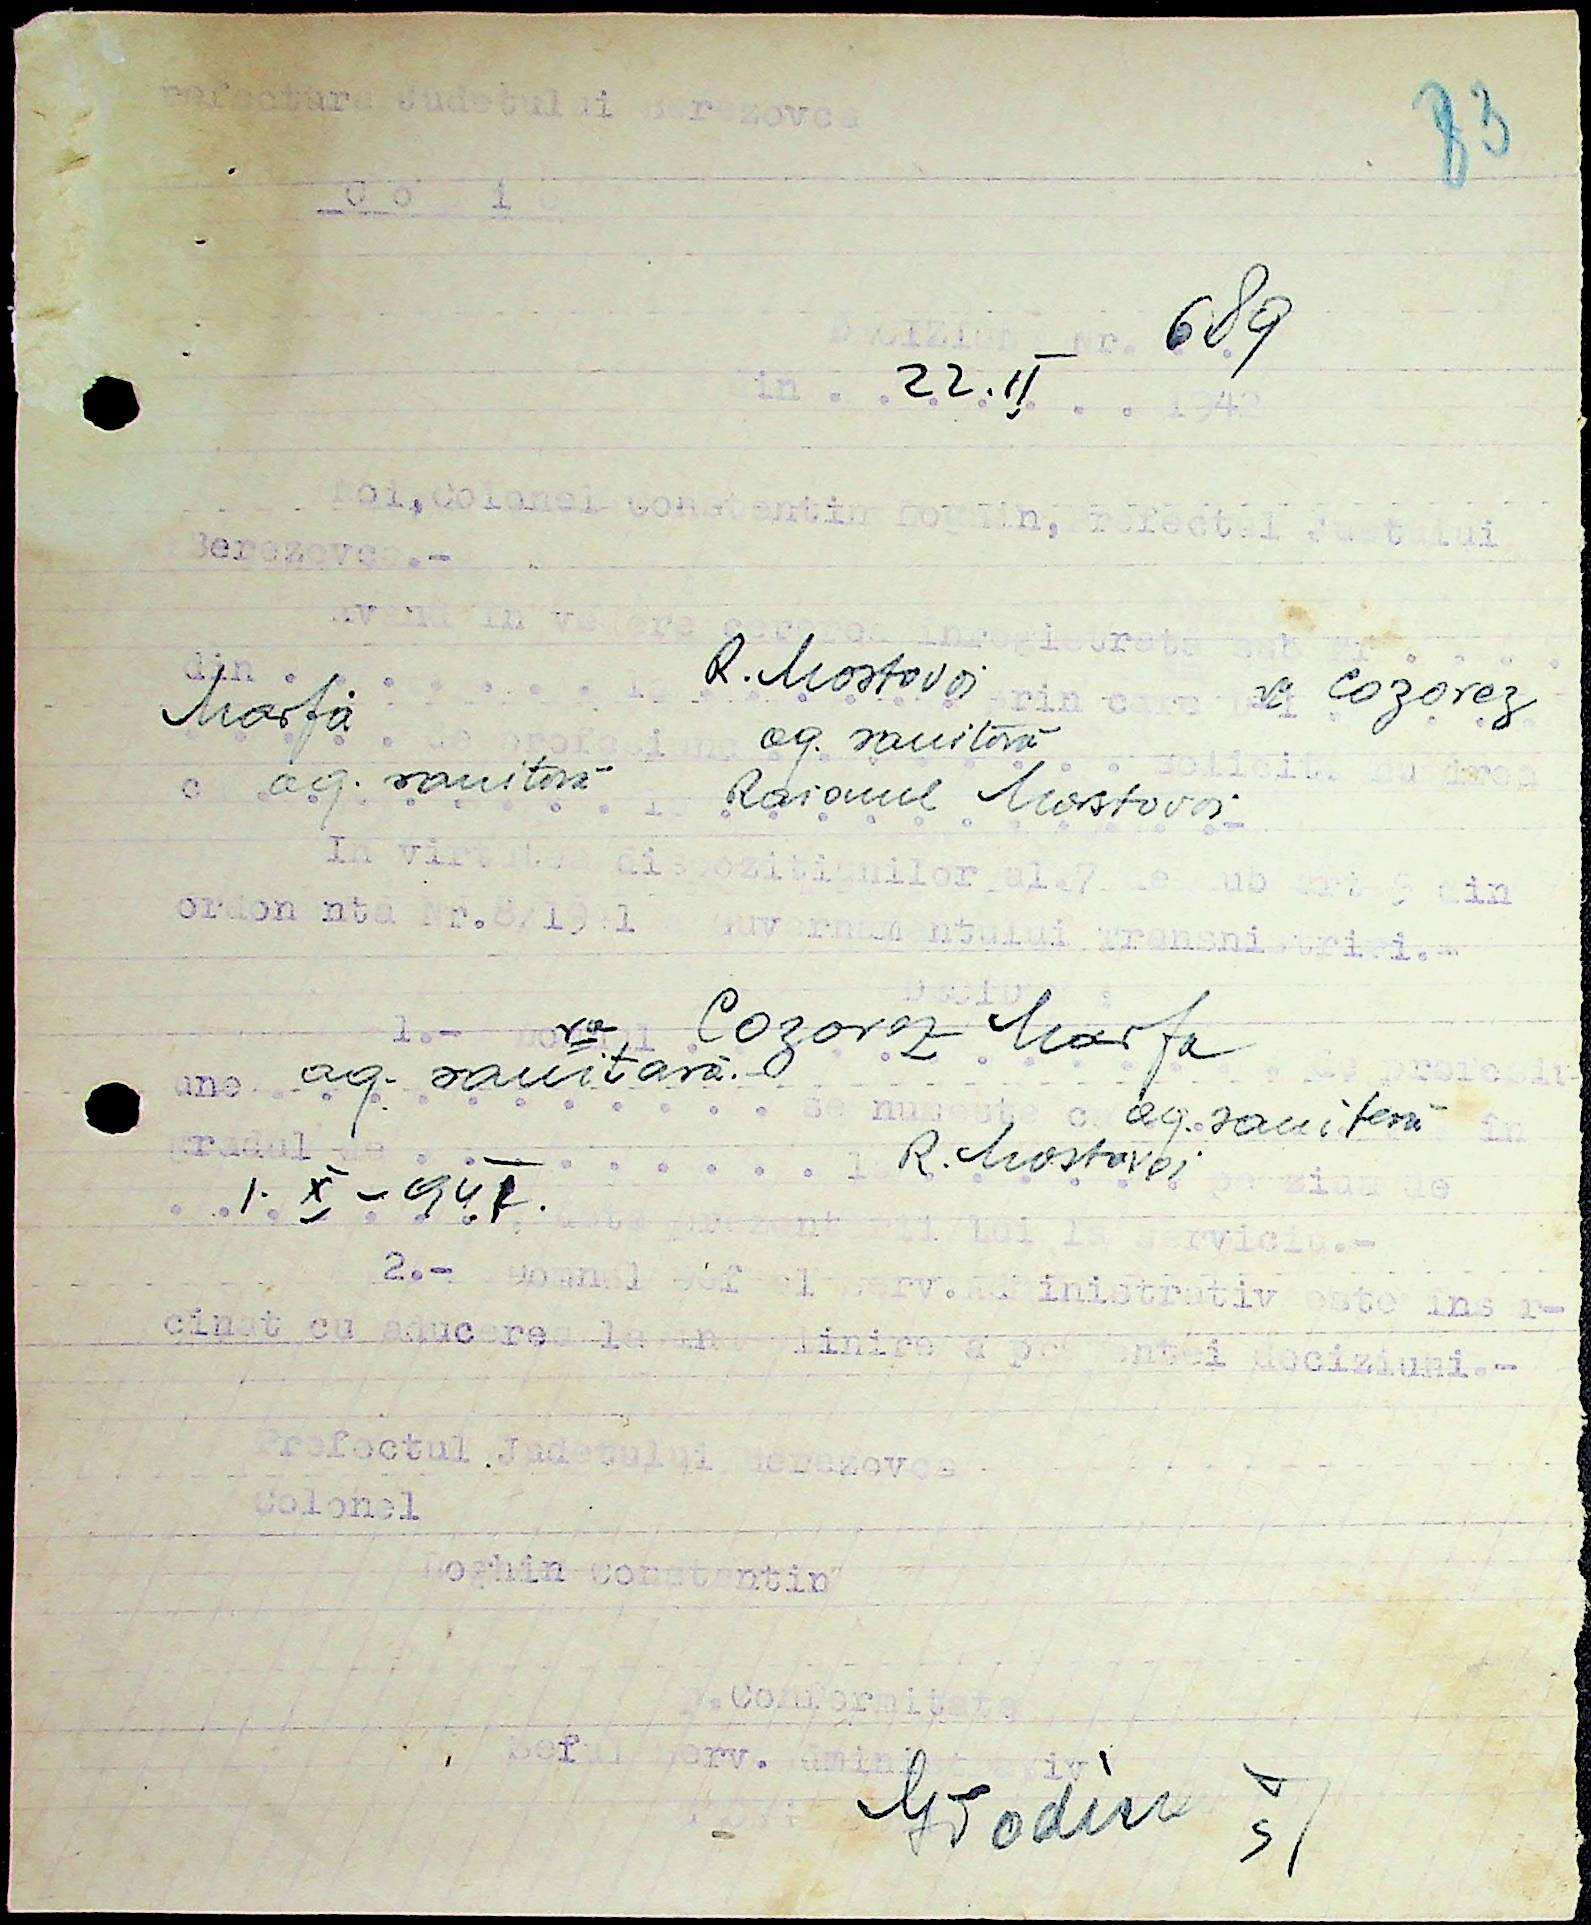 83
refectura Judetului Berezovca
Co i
DECIZIUNE Nr. 689
din 22.II 1942
Noi, Colonel Constantin Loghin, Prefectul Judetului
Berezovca.-
Avand in vedere cererea inregistrata sub Nr . . . .
din . . . . . . . la R. Mostovoi prin care Cozorez
Marfa de profesiune ag. sanitară solicita
ag. sanitară Raionul Mostovoi
In virtutea dispozitiunilor al.7 de sub art 5 din
ordonanta Nr.8/1941 a Guvernamantului Transnistriei.-
Decidem :
1.- Domnul Cozorez Marfa de profesiu
une ag. sanitară. se numeste ca ag. sanitară in
gradul de . . . . . . . . . la R. Mostovoi pe ziua de
1. X - 941. data prezentarii lui la serviciu.-
2.- Domnul Sef al Serv. Administrativ este insar-
cinat cu aducerea la indeplinire a prezentei deciziuni.-
Prefectul Judetului Berezovca
Colonel
Loghin Constantin
p. Conformitate
Seful Serv. Administrativ